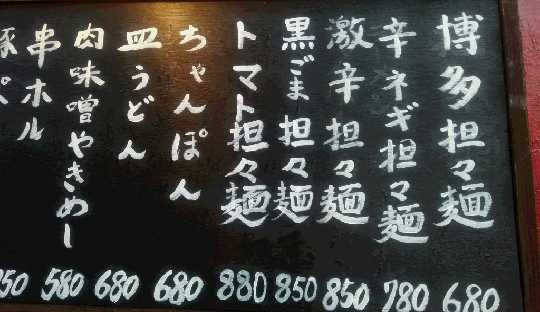 博多担々麺 680
辛ネギ担々麺 780
激辛担々麺 850
黒ごま担々麺 850
トマト担々麺 880
ちゃんぽん 680
皿うどん 680
肉味噌やきめし 580
串ホル